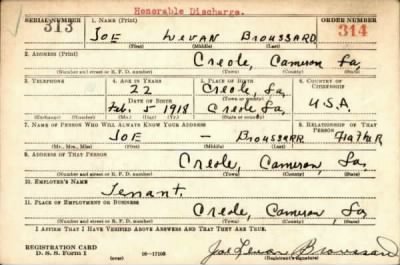 Honorable Discharge.
SERIAL NUMBER 1. NAME (Print) ORDER NUMBER
313 JOE LEVAN BROUSSARD 314
(First) (Middle) (Last)
2. ADDRESS (Print)
Creole, Cameron La,
(Number and street or R. F. D. number) (Town) (County) (State)
3. TELEPHONE 4. AGE IN YEARS 5. PLACE OF BIRTH 6. COUNTRY OF CITIZENSHIP
22 Creole, La,
DATE OF BIRTH (Town or county)
Feb. 5 1918 Creole La, U.S.A.
(Exchange) (Number) (Mo.) (Day) (Yr.) (State or country)
7. NAME OF PERSON WHO WILL ALWAYS KNOW YOUR ADDRESS 8. RELATIONSHIP OF THAT PERSON
JOE — BROUSSARR FATHER
(Mr., Mrs., Miss) (First) (Middle) (Last)
9. ADDRESS OF THAT PERSON
Creole, Cameron, La,
(Number and street or R. F. D. number) (Town) (County) (State)
10. EMPLOYER'S NAME
Tenant.
11. PLACE OF EMPLOYMENT OR BUSINESS
Creole, Cameron, La,
(Number and street or R. F. D. number) (Town) (County) (State)
I AFFIRM THAT I HAVE VERIFIED ABOVE ANSWERS AND THAT THEY ARE TRUE.
REGISTRATION CARD
D. S. S. Form 1 (over) 16—17105 Joe Levan Broussard
(Registrant's signature)